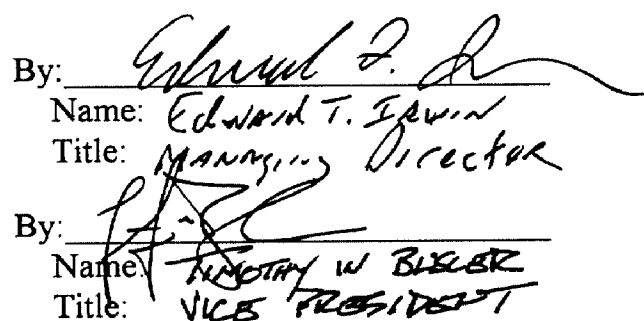 By: Edward T. Irwin
Name: Edward T. Irwin
Title: Managing Director
By:
Name: TIMOTHY W BISLER
Title: VICE PRESIDENT